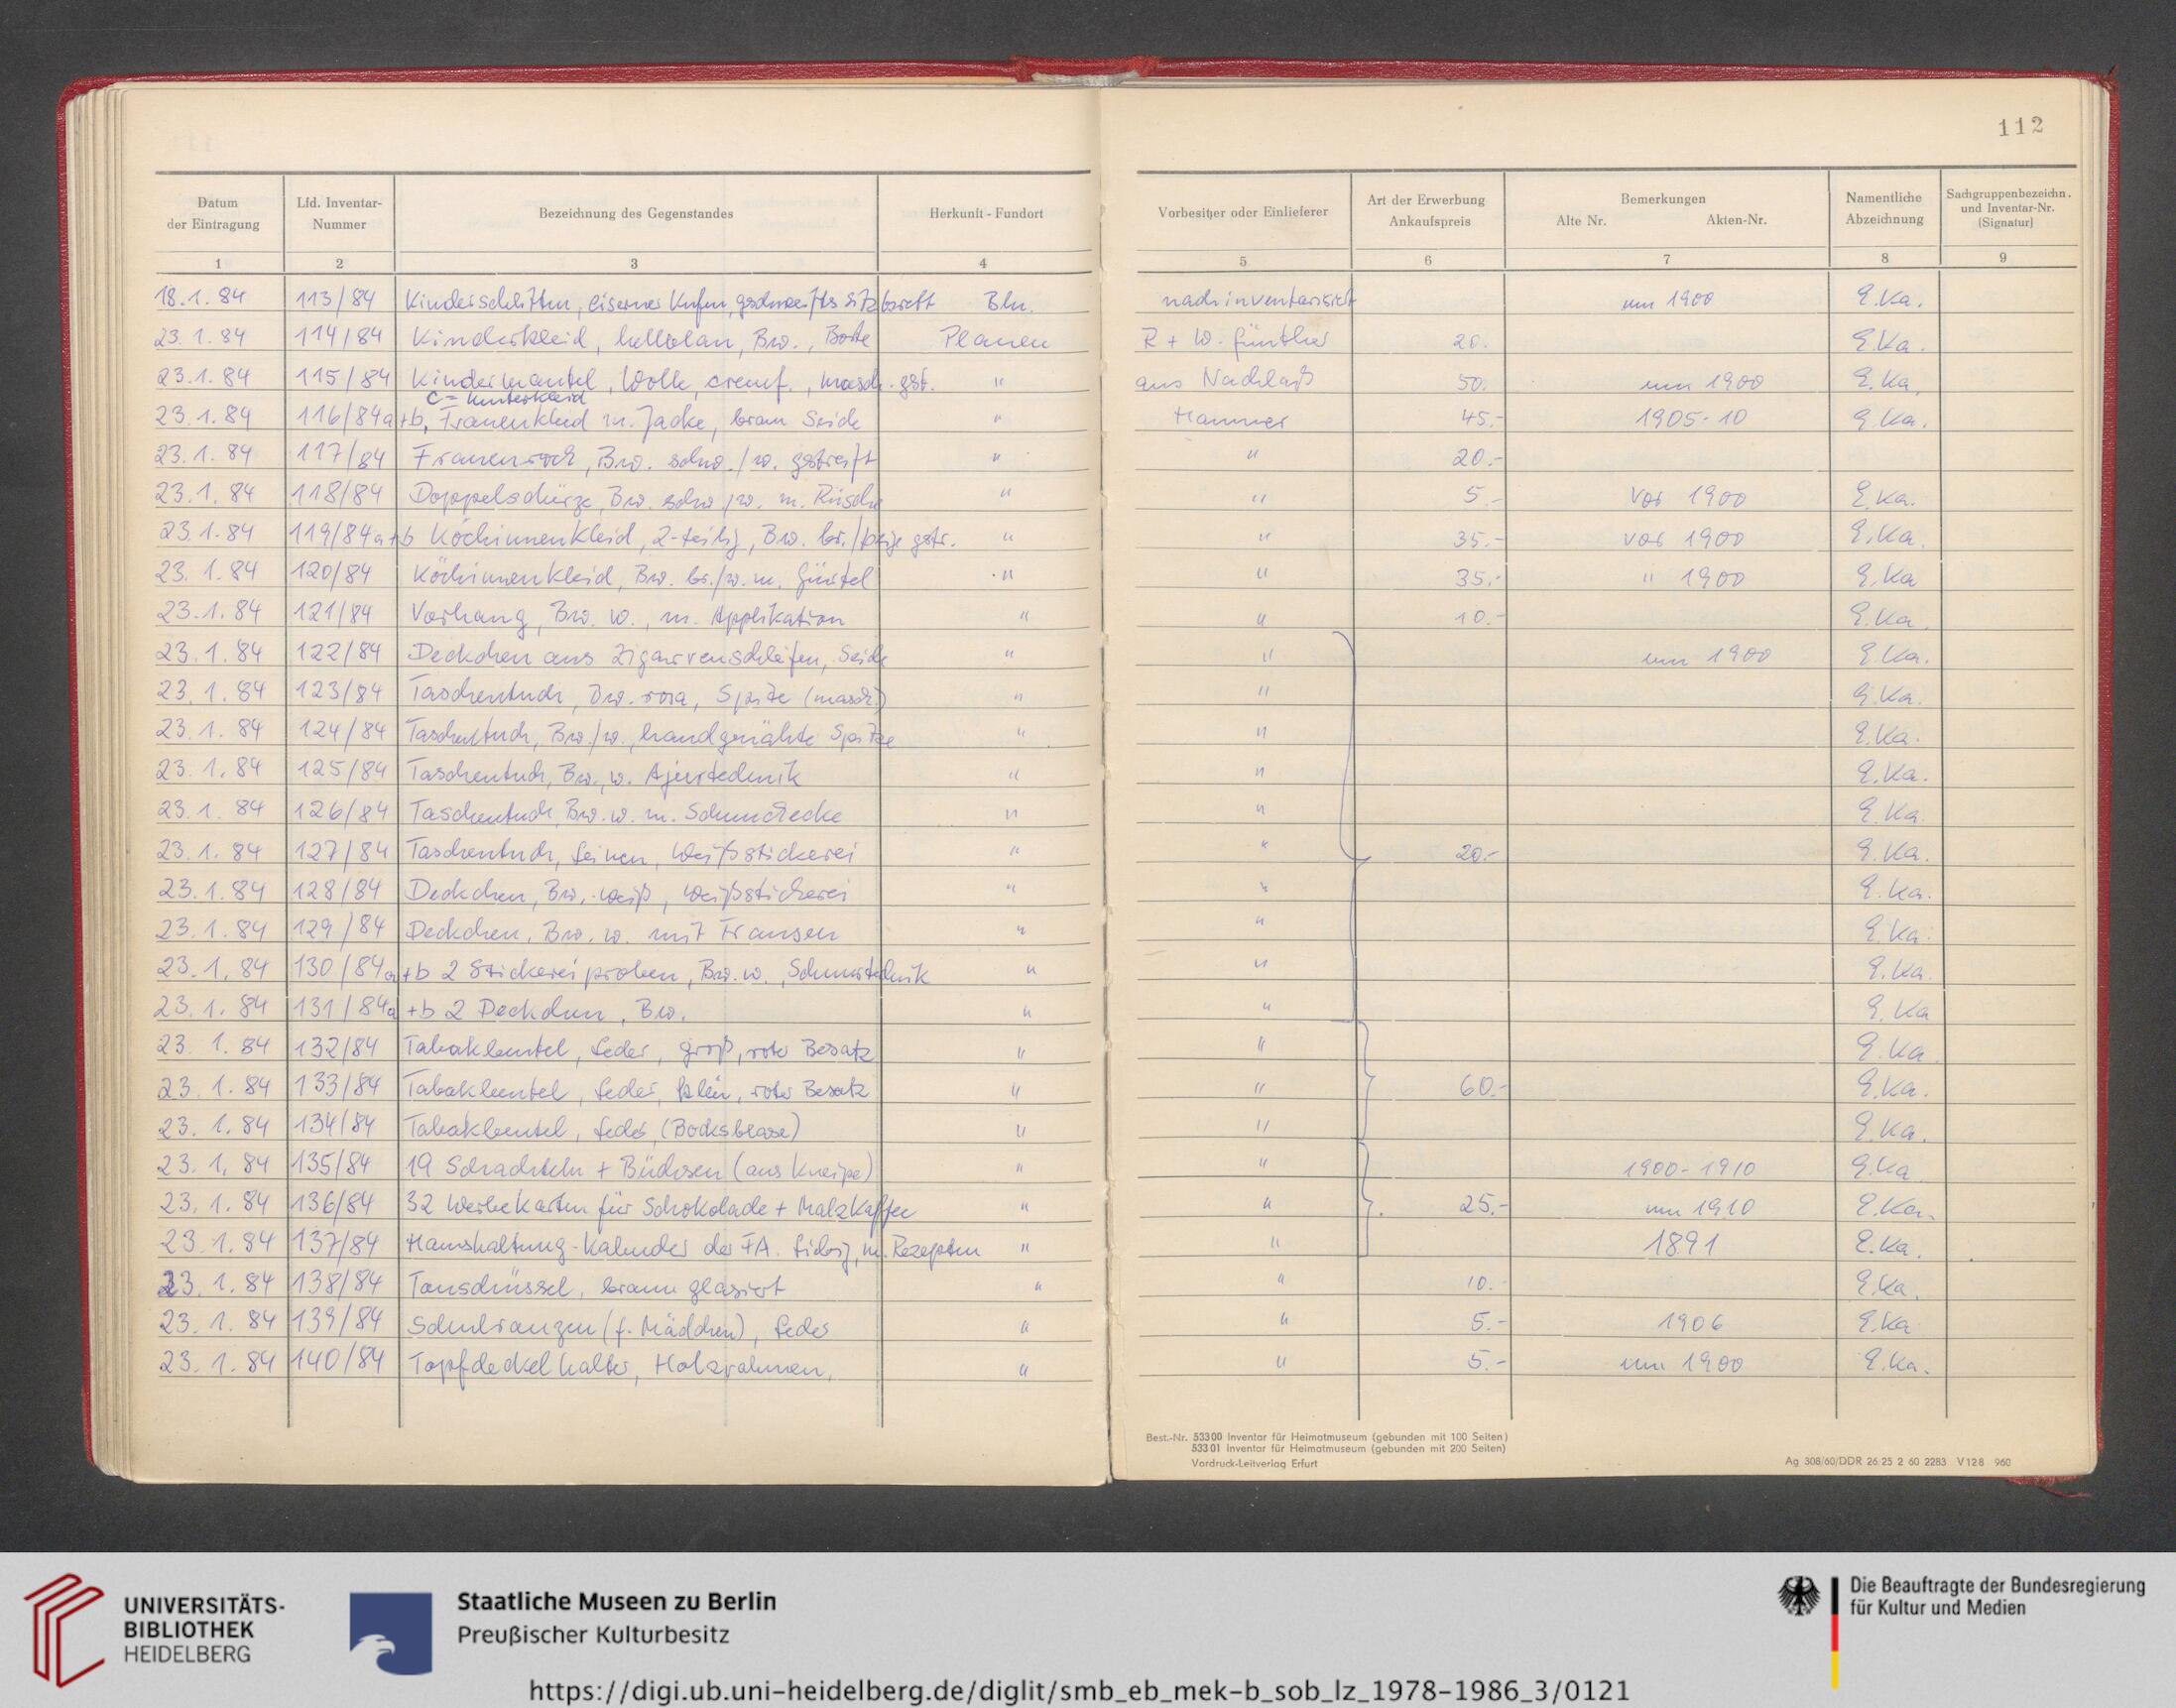 112
Datum der Eintragung | Lfd. Inventar-Nummer | Bezeichnung des Gegenstandes | Herkunft - Fundort | Vorbesitzer oder Einlieferer | Art der Erwerbung Ankaufspreis | Bemerkungen Alte Nr. Akten-Nr. | Namentliche Abzeichnung | Sachgruppenbezeichn. und Inventar-Nr. (Signatur)
1 2 3 4 5 6 7 8 9
18.1.84 113/84 Kinderschlitten, eiserne Kufen, geschweiftes Sitzbrett Bln. nachinventarisiert um 1900 E.Ka.
23.1.84 114/84 Kinderkleid, hellblau, Bw., Borte Plauen R + W. Günther 20.- E.Ka.
23.1.84 115/84 Kindermantel, Wolle, cremf., masch. gst. " aus Nachlaß 50.- um 1900 E.Ka.
c = Unterkleid
23.1.84 116/84a+b, Frauenkleid m. Jacke, braun Seide " Hammer 45.- 1905-10 E.Ka.
23.1.84 117/84 Frauenrock, Bw. schw./w. gestreift " " 20.-
23.1.84 118/84 Doppelschürze, Bw. schw/w. m. Rüsche " " 5.- vor 1900 E.Ka.
23.1.84 119/84a+b Köchinnenkleid, 2-teilig, Bw. br./beige gstr. " " 35.- vor 1900 E.Ka.
23.1.84 120/84 Köchinnenkleid, Bw. br./w. m. Gürtel " " 35.- " 1900 E.Ka
23.1.84 121/84 Vorhang, Bw. w., m. Applikation " " 10.- E.Ka.
23.1.84 122/84 Deckchen aus Zigarrenschleifen, Seide " " um 1900 E.Ka.
23.1.84 123/84 Taschentuch, Bw. rosa, Spitze (masch.) " " E.Ka.
23.1.84 124/84 Taschentuch, Bw./w., handgenähte Spitze " " E.Ka.
23.1.84 125/84 Taschentuch, Bw. w. Ajourtechnik " " E.Ka.
23.1.84 126/84 Taschentuch Bw. w. m. Schmuckecke " " E.Ka.
23.1.84 127/84 Taschentuch, Leinen, Weißstickerei " " 20.- E.Ka.
23.1.84 128/84 Deckchen, Bw. weiß, Weißstickerei " " E.Ka.
23.1.84 129/84 Deckchen, Bw. w. mit Fransen " " E.Ka.
23.1.84 130/84a+b 2 Stickereiproben, Bw. w., " " E.Ka.
23.1.84 131/84a+b 2 Deckchen, Bw. " " E.Ka
23.1.84 132/84 Tabakbeutel, Leder, groß, roter Besatz " " E.Ka.
23.1.84 133/84 Tabakbeutel, Leder, klein, roter Besatz " " 60.- E.Ka.
23.1.84 134/84 Tabakbeutel, Leder (Bocksblase) " " E.Ka.
23.1.84 135/84 19 Schachteln + Büchsen (aus Kneipe) " " 1900-1910 E.Ka
23.1.84 136/84 32 Werbekarten für Schokolade + Malzkaffee " " 25.- um 1910 E.Ka.
23.1.84 137/84 Haushaltung-Kalender der FA. Liebig, m. Rezepten " " 1891 E.Ka.
23.1.84 138/84 Tonschüssel, braun glasiert " " 10.- E.Ka.
23.1.84 139/84 Schulranzen (f. Mädchen), Leder " " 5.- 1906 E.Ka
23.1.84 140/84 Topfdeckelhalter, Holzrahmen, " " 5.- um 1900 E.Ka.
Best.-Nr. 53300 Inventar für Heimatmuseum (gebunden mit 100 Seiten)
53301 Inventar für Heimatmuseum (gebunden mit 200 Seiten)
Vordruck-Leitverlag Erfurt
Ag 308/60/DDR 26 25 2 60 2283 V128 960
UNIVERSITÄTS-
BIBLIOTHEK
HEIDELBERG
Staatliche Museen zu Berlin
Preußischer Kulturbesitz
Die Beauftragte der Bundesregierung
für Kultur und Medien
https://digi.ub.uni-heidelberg.de/diglit/smb_eb_mek-b_sob_lz_1978-1986_3/0121